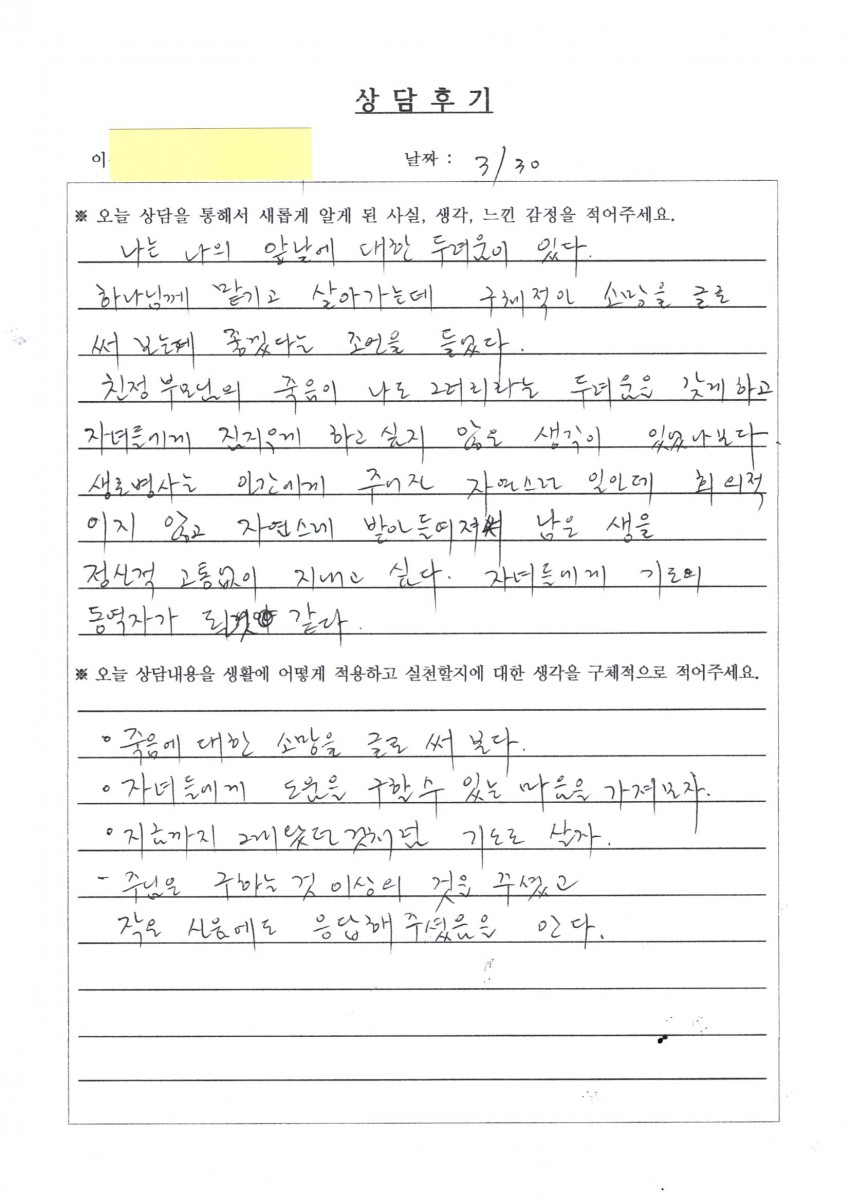 상 담 후 기
이
날짜 : 3/30
※ 오늘 상담을 통해서 새롭게 알게 된 사실, 생각, 느낀 감정을 적어주세요.
나는 나의 앞날에 대한 두려움이 있다.
하나님께 맡기고 살아가는데 구체적인 소망을 글로
써 보는데 좋겠다는 조언을 들었다.
친정 부모님의 죽음이 나도 그러리라는 두려움을 갖게하고
자녀들에게 짐지우게 하고 싶지 않은 생각이 있었나보다.
생로병사는 인간에게 주어진 자연스런 일인데 회의적
이지 않고 자연스레 받아들여져서 남은 생을
정신적 고통없이 지내고 싶다. 자녀들에게 기도의
동역자가 같다.
※ 오늘 상담내용을 생활에 어떻게 적용하고 실천할지에 대한 생각을 구체적으로 적어주세요.
◦ 죽음에 대한 소망을 글로 써 보다.
◦ 자녀들에게 도움을 구할 수 있는 마음을 가져보자.
◦ 지금까지 그래왔던 것처럼 기도로 살자.
- 주님은 구하는 것 이상의 것을 주셨고
작은 신음에도 응답해 주셨음을 안다.